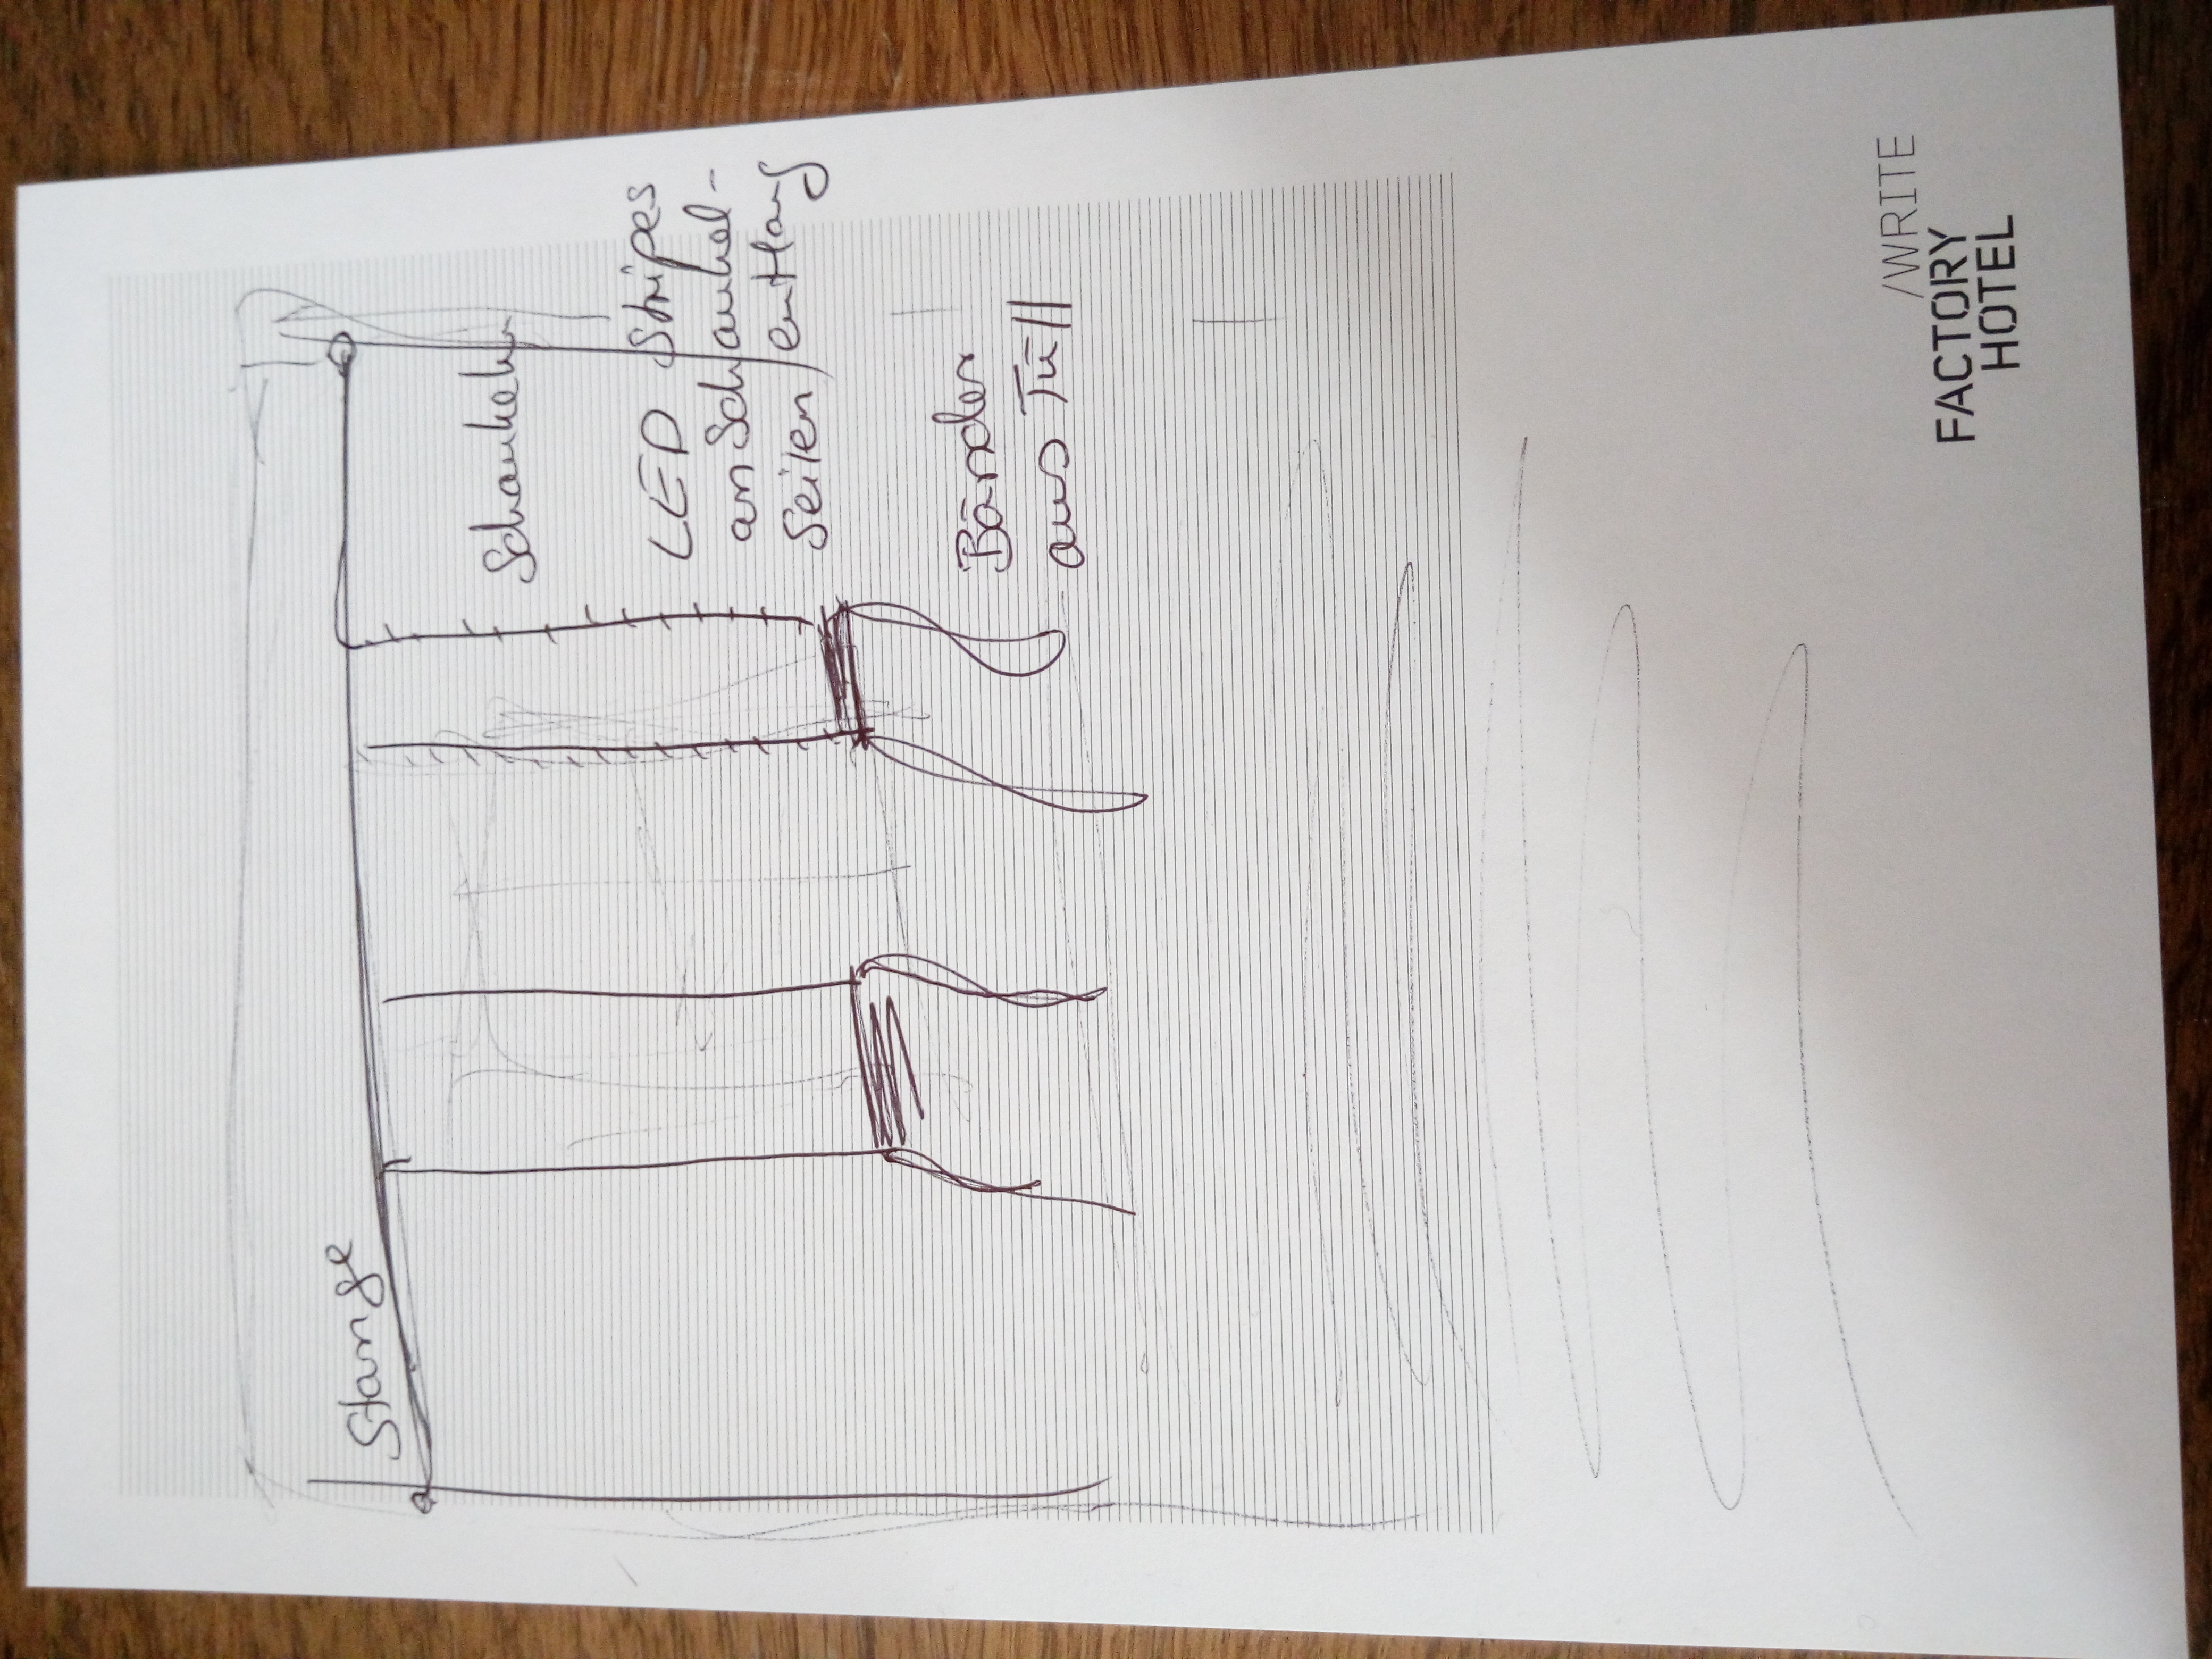 Stange
Schaukeln
LED Stripes
an Schaukel-
Seilen entlang
Bänder
aus Tüll
/WRITE
FACTORY
HOTEL